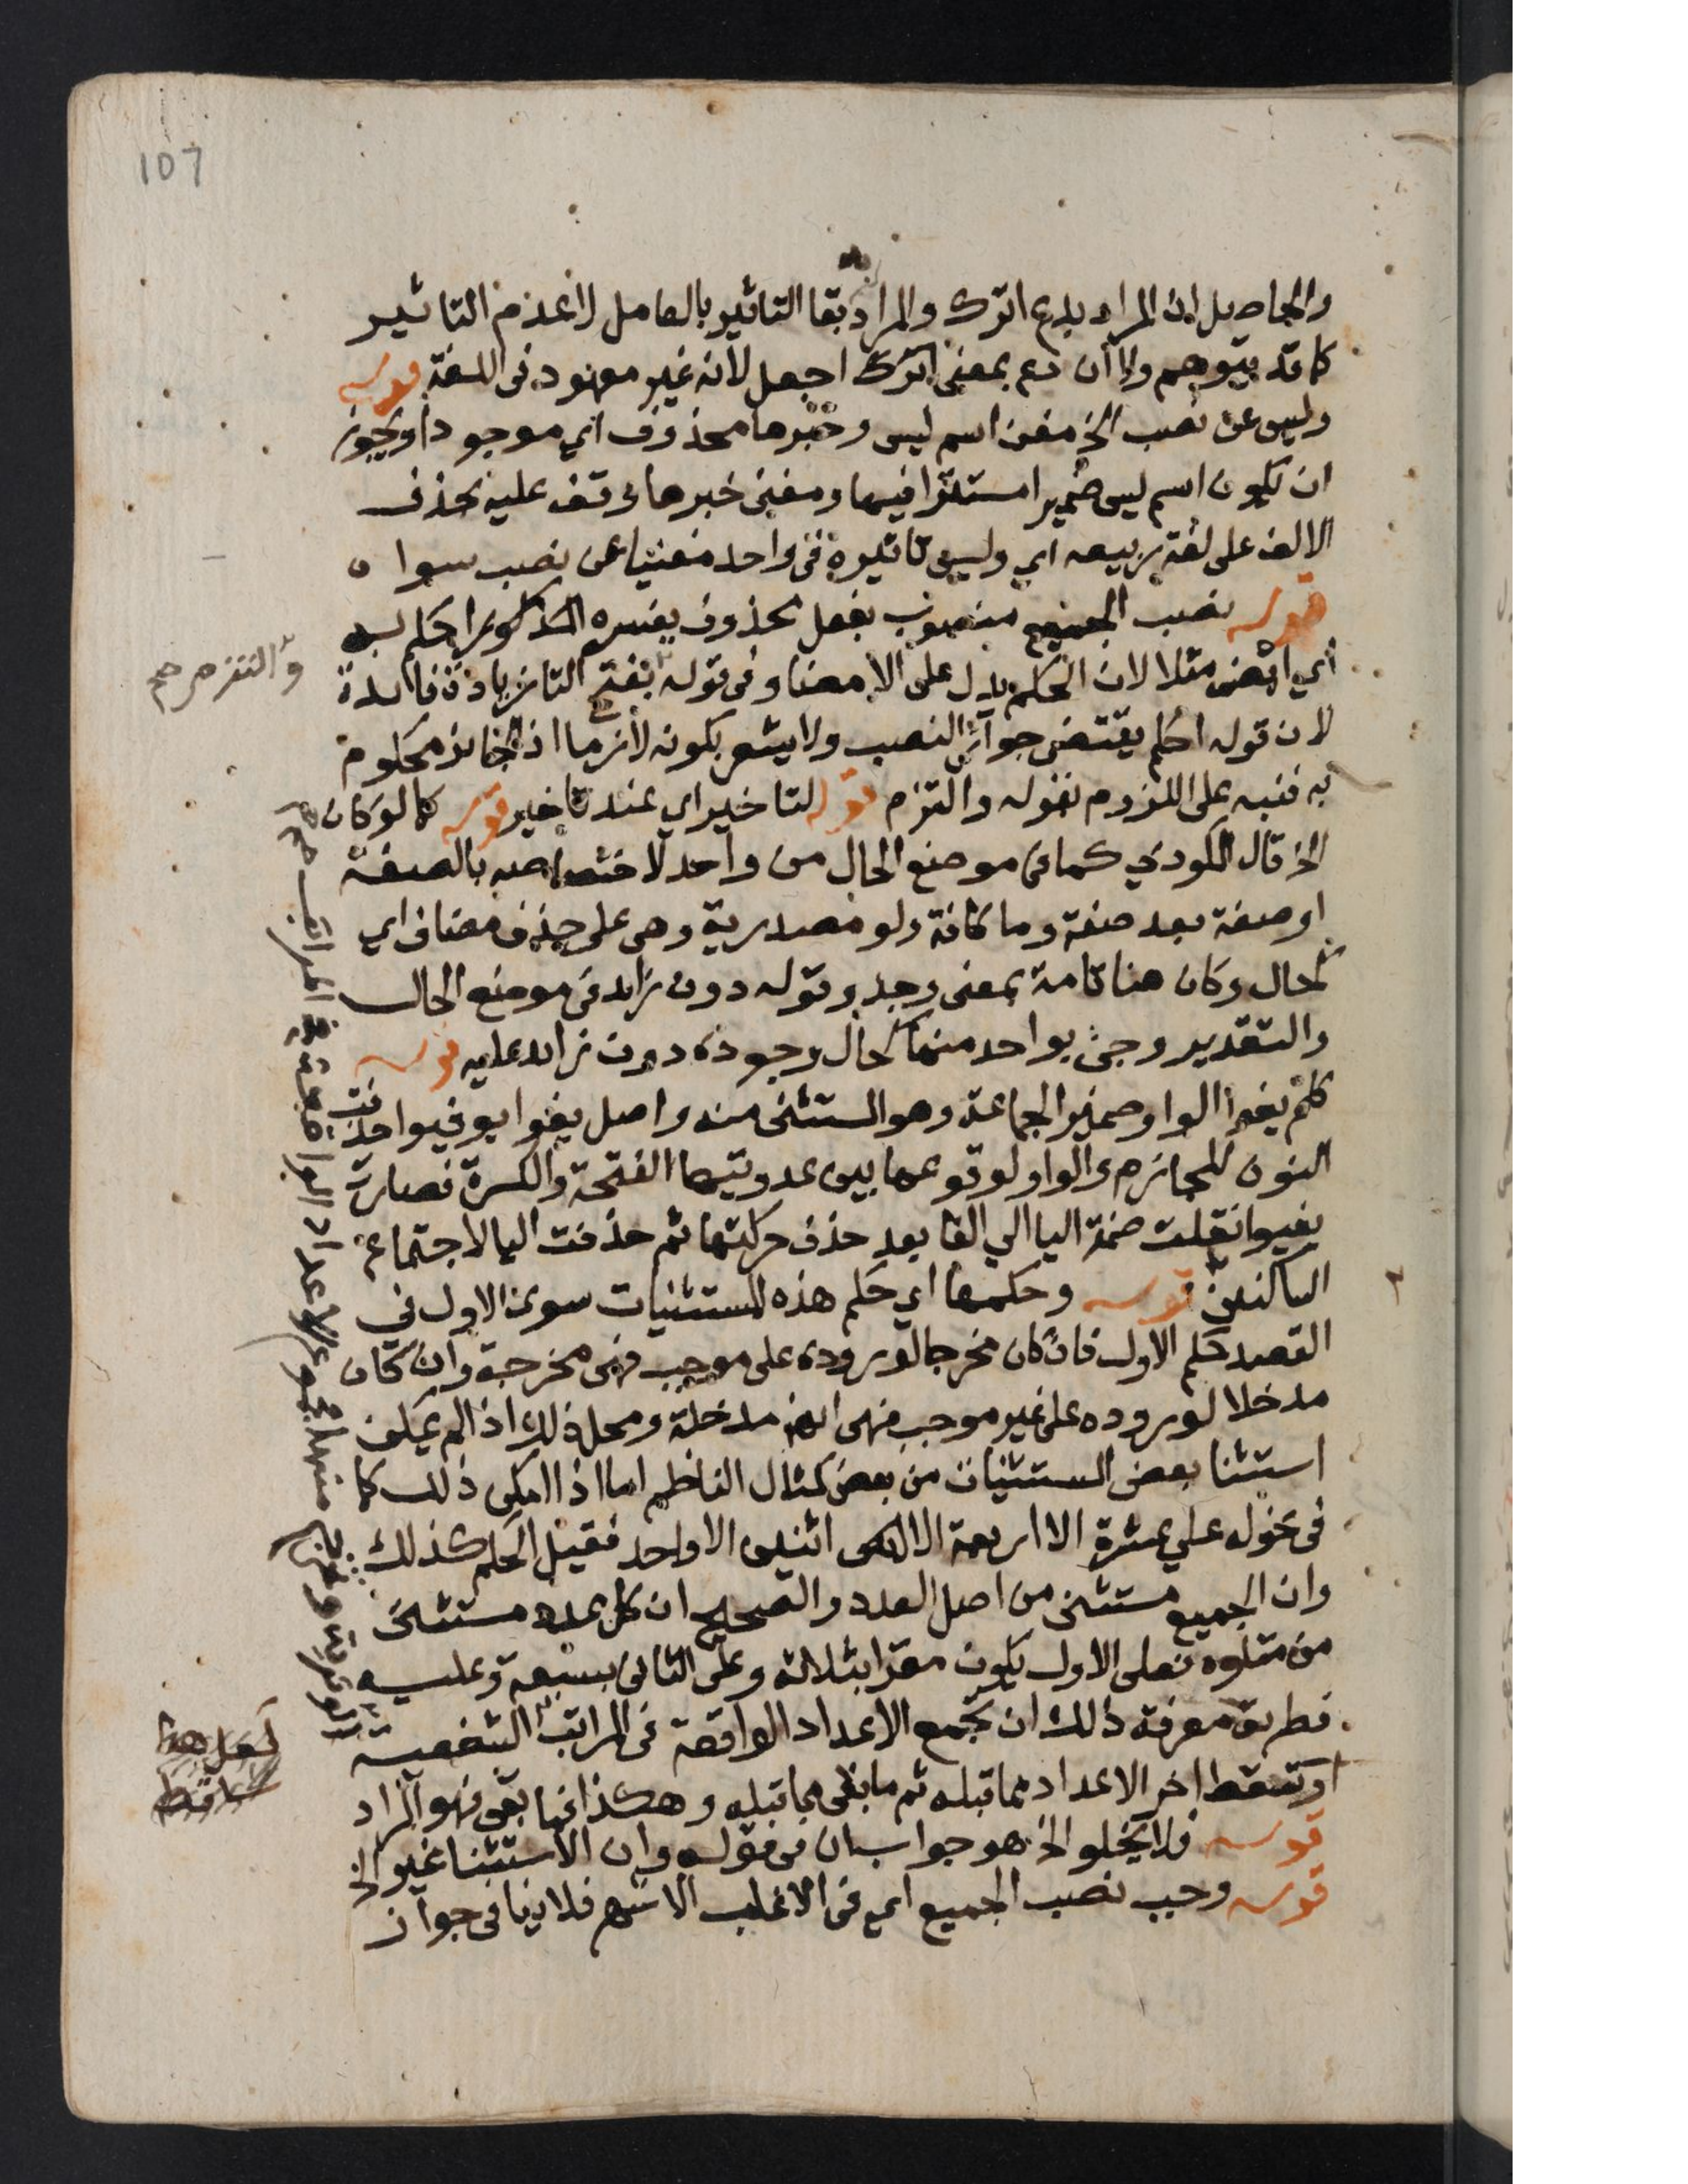 107
والحاصل ان المراد بدع اترك والمراد بقا التاثير بالعامل لا عدم التاثير
كما قد يتوهم ولا أن دع بمعنى اترك اجعل لأنه غير معهود فى اللغة قوله
وليس عن نصب الخ مغن اسم ليس وخبرها محذوف اي موجودا ويجوز
ان يكون اسم ليس ضميرا مستترا فيها ومغنى خبرها وقف عليه بحذف
الالف على لغة ربيعه اي وليس تاثيره فى واحد مغنيا عن نصب سواه
قوله نصب الجميع منصوب بفعل محذوف يفسره المذكور احكم به
أي امض مثلا لان الحكم يدل على الامضا وفى قوله بفتح التا زيادة فائدة
لان قوله احكم يقتضى جواز النصب ولا يشعر بكونه لازما اذ الجائز محكوم
به فنبه على اللزوم بقوله والتزم قوله لتاخير اي عند تاخير قوله كما لو كان
الخ قال المكودي كما فى موضع الحال من واحد لاختصاصه بالصفة
او صفة بعد صفة وما كافة ولو مصدرية وهى على حذف مضاف اي
كحال وكان هنا تامة بمعنى وجد وقوله دون زايد فى موضع الحال
والتقدير وجئ بواحد منها كحال وجوده دون زايد عليه قوله
كلم يفوا الواو ضمير الجماعة وهو المستثنى منه واصل يفوا يوفيوا حذفت
النون للجازم والواو لوقوعها بين عدوتيها الفتحة والكسرة فصارت
يفيوا نقلت ضمة اليا الي الفا بعد حذف حركتها ثم حذفت اليا لاجتماع
الساكنين قوله وحكمها اي حكم هذه المستثنيات سوى الاول في
القصد حكم الاول فان كان مخرجا لوروده على موجب فهى مخرجة وان كان
مدخلا لوروده على غير موجب فهى ايضا مدخلة ومحل ذلك اذا لم يمكن
استثنا بعض المستثنيات من بعض كمثال الناظم اما اذا امكن ذلك كما
فى نحو له علي عشرة الا اربعة الا اثنين الا واحد فقيل الحكم كذلك
وان الجميع مستثنى من اصل العدد والصحيح ان كل عدد مستثنى
من متلوه فعلى الاول يكون مقرا بثلاثة وعلى الثانى بسبعة وعليه
فطريق معرفة ذلك ان تجمع الاعداد الواقعة فى المراتب الشفعية
او تسقط اخر الاعداد مما قبله ثم ما بقى مما قبله وهكذا فما بقى فهو المراد
قوله فلا يخلو الخ هو جواب ان فى قوله وان الاستثنا غير الخ
قوله وجب نصب الجميع اي فى الاغلب الاشهر فلا ينافى جواز
والتزم صح
الوترية وتخرج منها مجموع الاعداد الواقعة فى المراتب
لعل هنا
ساقط